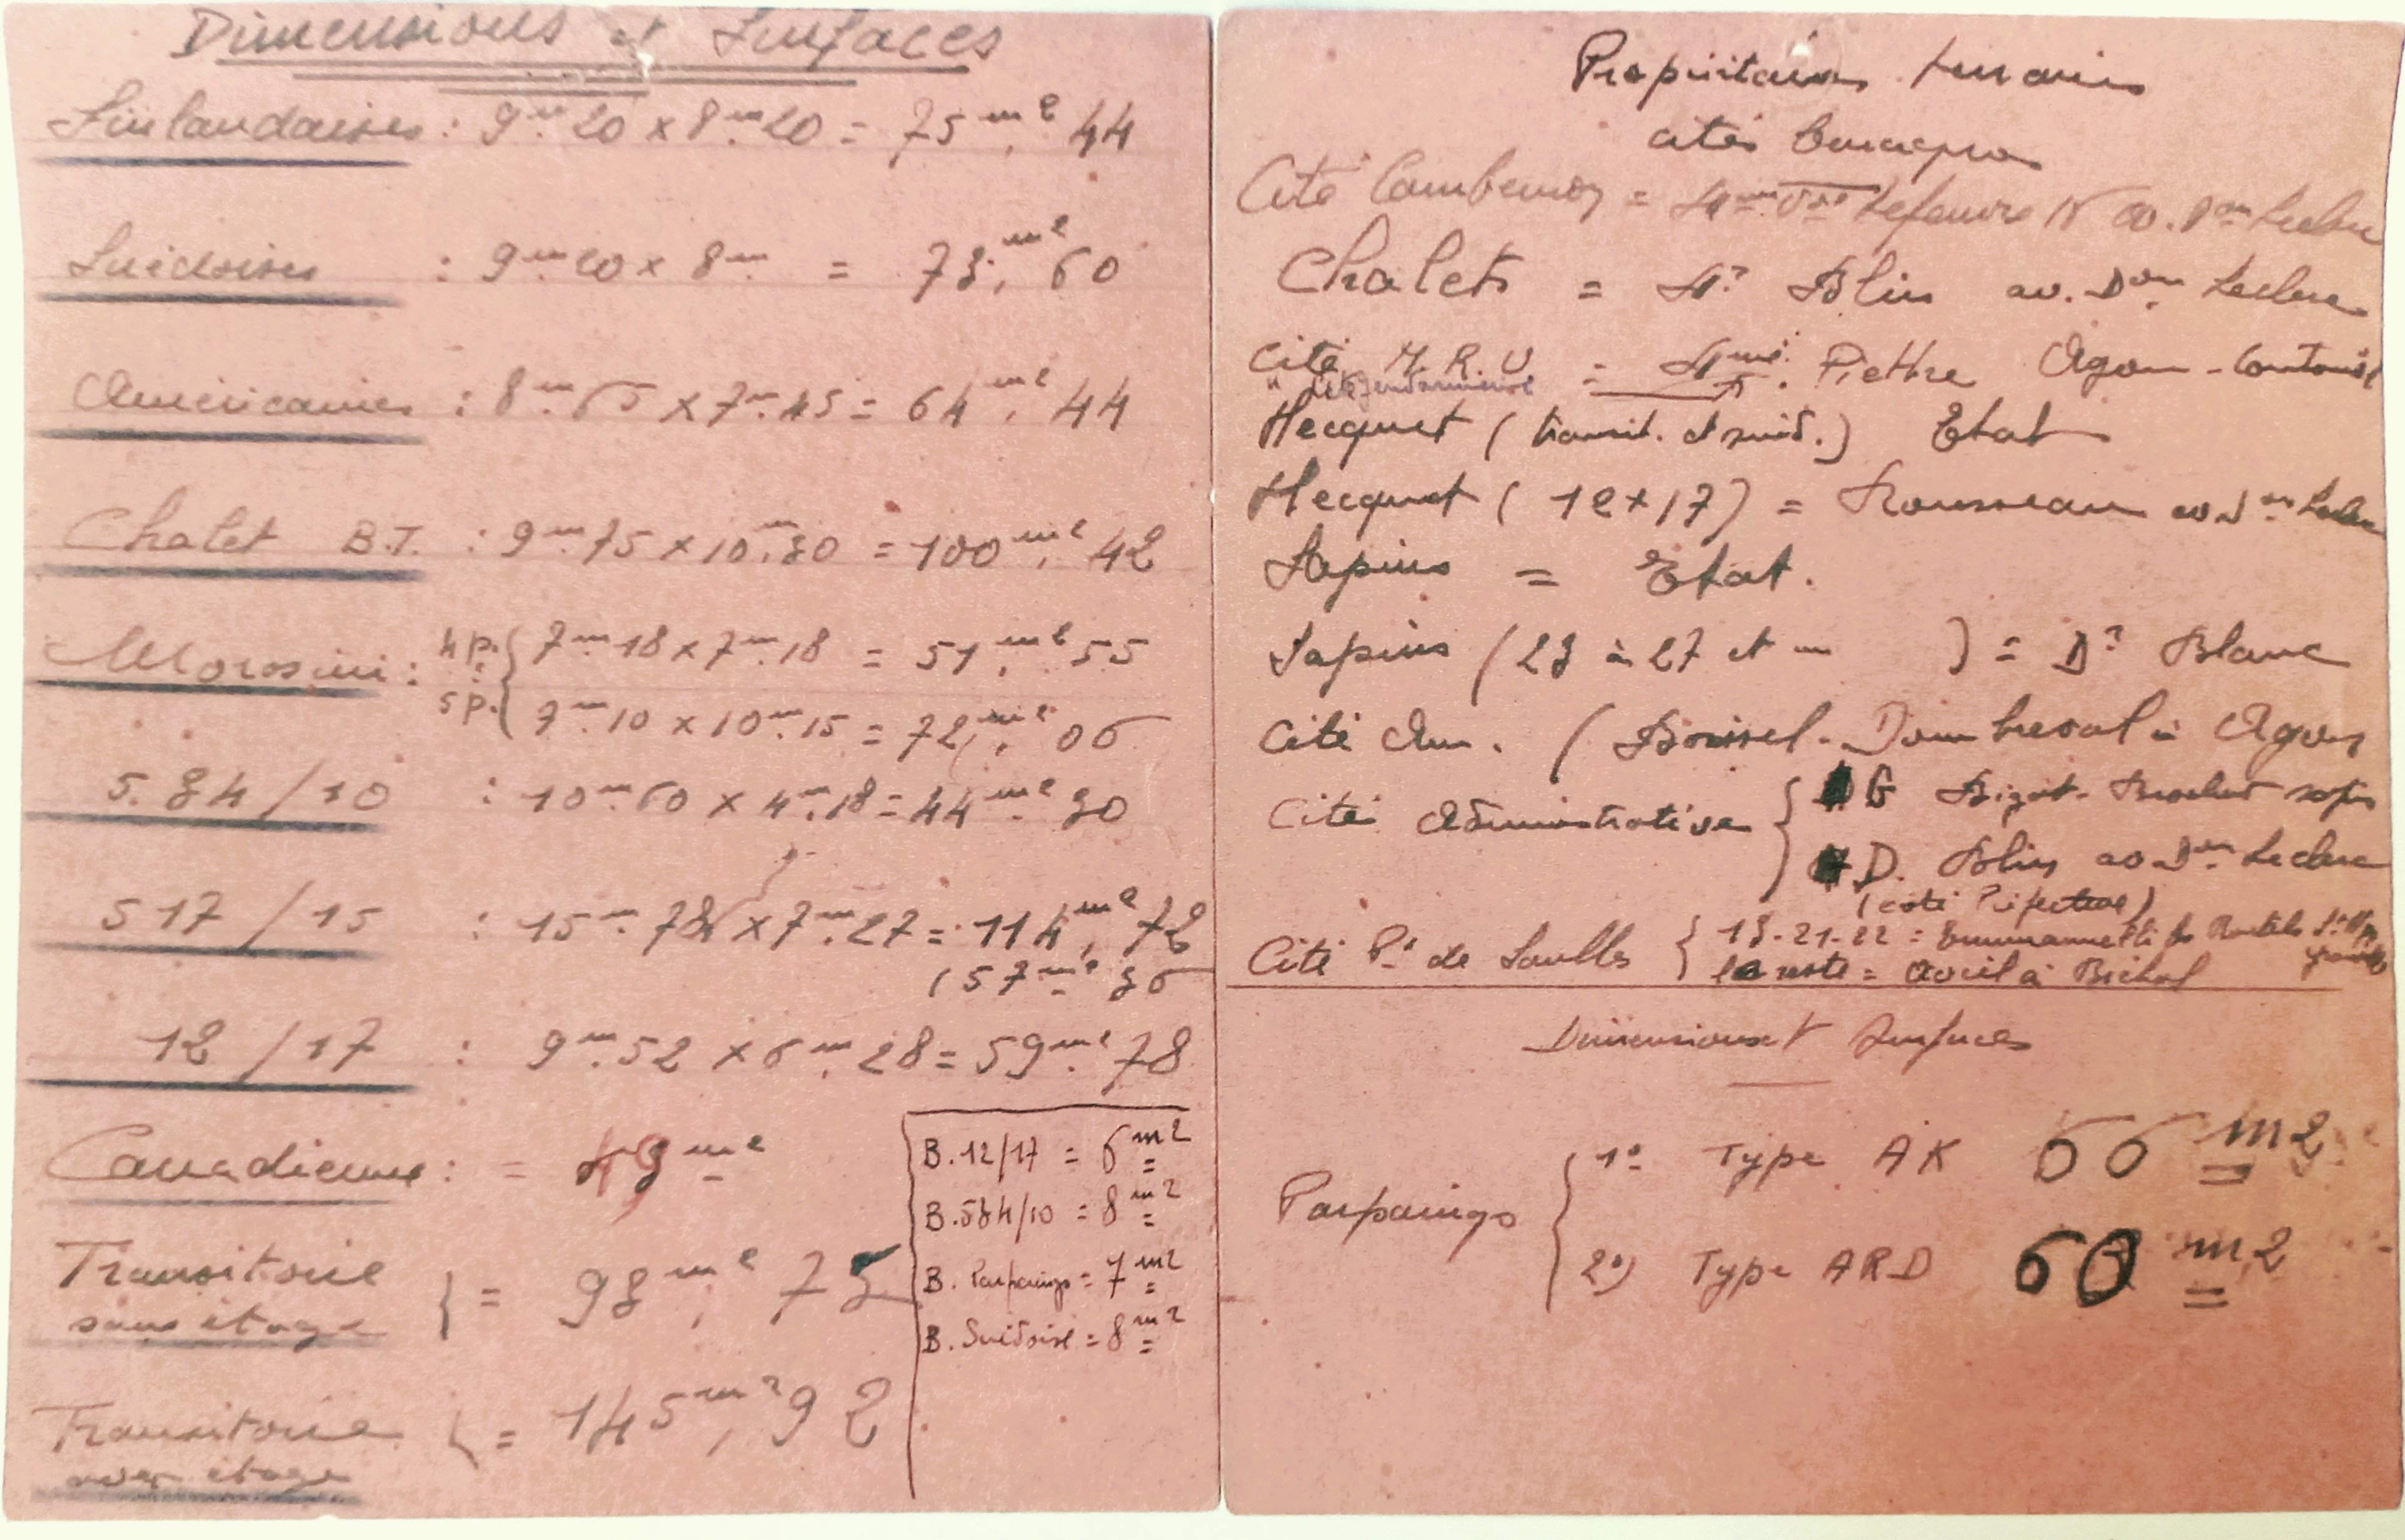 Dimensions et Surfaces
Finlandaises : 9m.20 x 8m.20 = 75m2,44
Suédoises : 9m20 x 8m = 73,m260
Américaines : 8m.65 x 7m.45 = 64m2,44
Chalet B.T. : 9m.75 x 10m.30 = 100m2,42
Morosini : 4 p. { 7m18 x 7m.18 = 51,m255
5 p. { 7m.10 x 10m.15 = 72,m206
534/10 : 10m.60 x 4m.18 = 44m2.30
517/15 : 15m.78 x 7m.27 = 114m2,72
(57m236
12/17 : 9m.52 x 6m.28 = 59m2.78
Canadienne : = 49m2
Transitoire
sans étage } = 98m2,75
Transitoire
avec étage { = 145m2,92
B.12/17 = 6m2
B.534/10 = 8m2
B. Parpaings = 7m2
B. Suédoise = 8m2
Propriétaires terrains
cités
Cité Cambernon = Lefeuvre av. Don Leclerc
Chalets = Mr Blin av. Don Leclerc
Cité M.R.U = Mme. Piettre Agon-Coutainville
" de la gendarmerie
Hecquet (transit. et suéd.) Etat
Hecquet (12x17) = Rousseau av Don Leclerc
Sapins = Etat.
Sapins (23 à 27 et — ) = Dr Blanc
Cité Am. ( Boissel-Dombreval à Agon
Cité Administrative { G Bizot-
D. Blin av Don Leclerc
(côté Préfecture)
Cité Pt de Saulles { 13-21-22 =
le reste = Avril à
Dimensions et Surfaces
Parpaings { 1° Type AK 66 m2
2°) Type ARD 60 m2